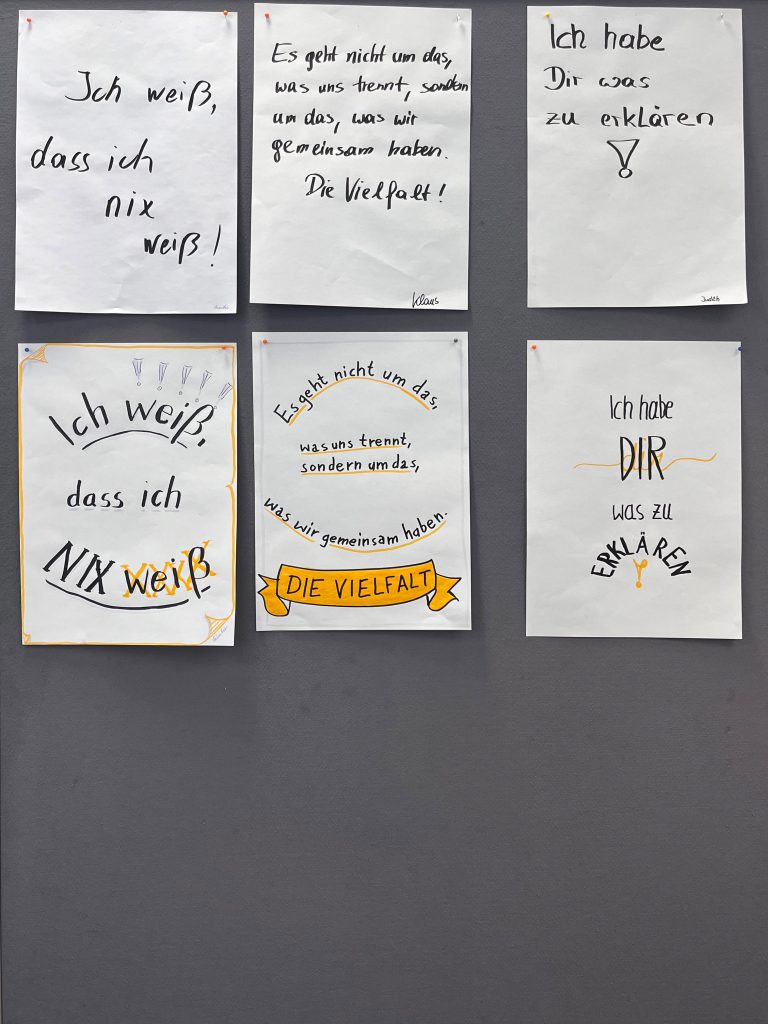 Ich weiß,
dass ich
nix
weiß!
Es geht nicht um das,
was uns trennt, sondern
um das, was wir
gemeinsam haben.
Die Vielfalt!
Klaus
Ich habe
Dir was
zu erklären
!
Judith
!!!!!
Ich weiß,
dass ich
NIX weiß
Es geht nicht um das,
was uns trennt,
sondern um das,
was wir gemeinsam haben.
DIE VIELFALT
Ich habe
DIR
was zu
ERKLÄREN
!